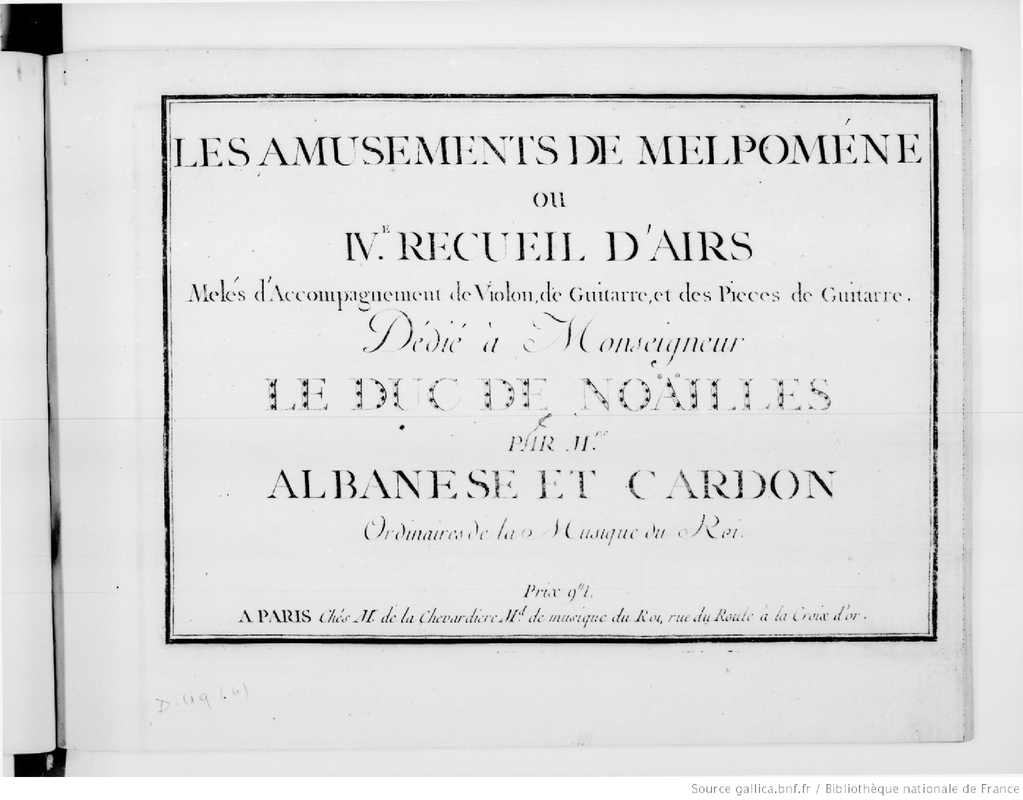 LES AMUSEMENTS DE MELPOMÉNE
OU
IV.E RECUEIL D'AIRS
Melés d'Accompagnement de Violon, de Guitarre, et des Pieces de Guitarre.
Dédié à Monseigneur
LE DUC DE NOÄILLES
PAR M.rs
ALBANESE ET CARDON
Ordinaires de la Musique du Roi.
Prix 9.tt
A PARIS Chés M. de la Chevardiere M.d de musique du Roi, rue du Roule à la Croix d'or.
Source gallica.bnf.fr / Bibliothèque nationale de France